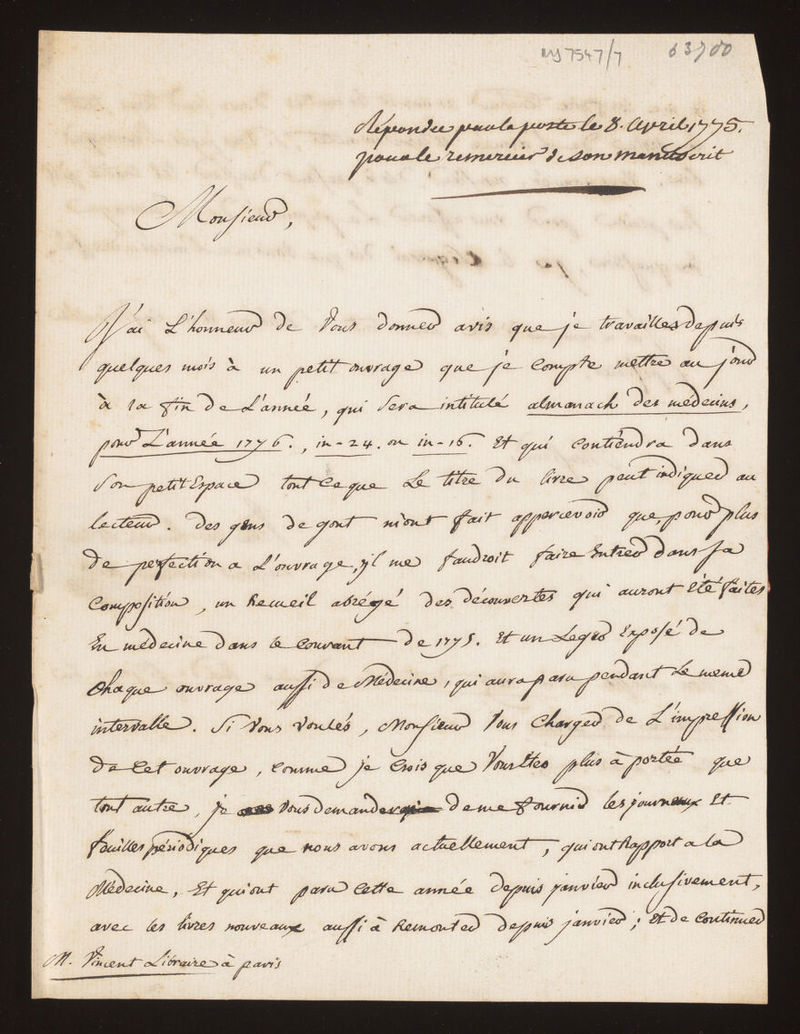 MS 7547/7 63700
Répondu par la poste le 8. Avril 1775.
pour le remercier de son manuscrit
Monsieur,
J'ai L'honneur de Vous donner avis que je travaille depuis
quelques mois à un petit ouvrage que je compte mettre au jour
à la fin de L'année, qui sera intitulé almanach des medecins,
pour L'année 1776., in-24. ou in-16. Et qui contiendra dans
son petit Espace tout ce que Le titre du livre peut indiquer au
lecteur. des gens de gout m'ont fait appercevoir que, pour plus
de perfection a L'ouvrage, il me faudroit faire Entrer dans sa
composition, un Recueil abrégé des découvertes qui auront Eté faites
En medecine dans le courant de 1775. Et un Leger Exposé de
chaque ouvrage aussi de Médecine, qui aura paru pendant Le meme
intervalle. Si Vous voulés, Monsieur Vous charger de L'impression
de cet ouvrage, comme je crois que Vous Etes plus à portée que
tout autre, je Vous demande de me fournir les journaux Et
feuilles périodiques que nous avons actuellement, qui ont Rapport a la
Médecine, Et qui ont paru cette année depuis janvier inclusivement,
avec les livres nouveaux aussi à Remonter depuis janvier; Et de continuer
M. Vincent Libraire à paris